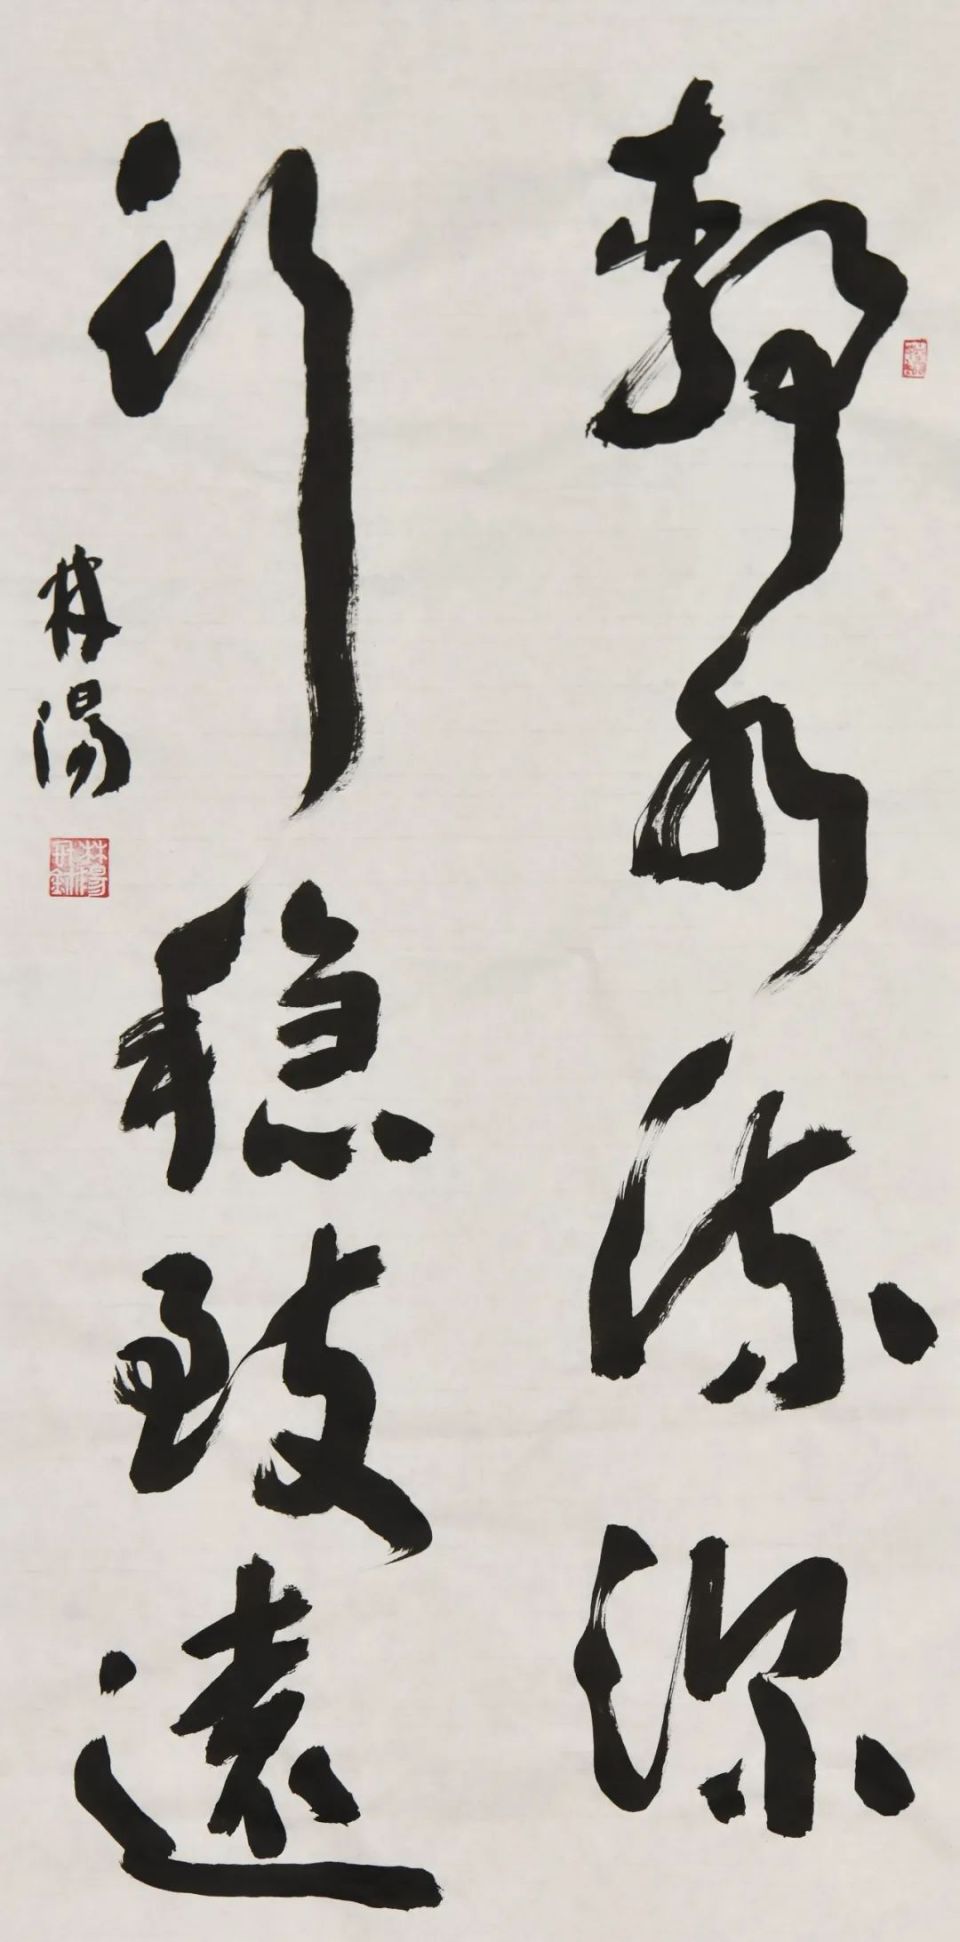 静水流深
行稳致远
林阳